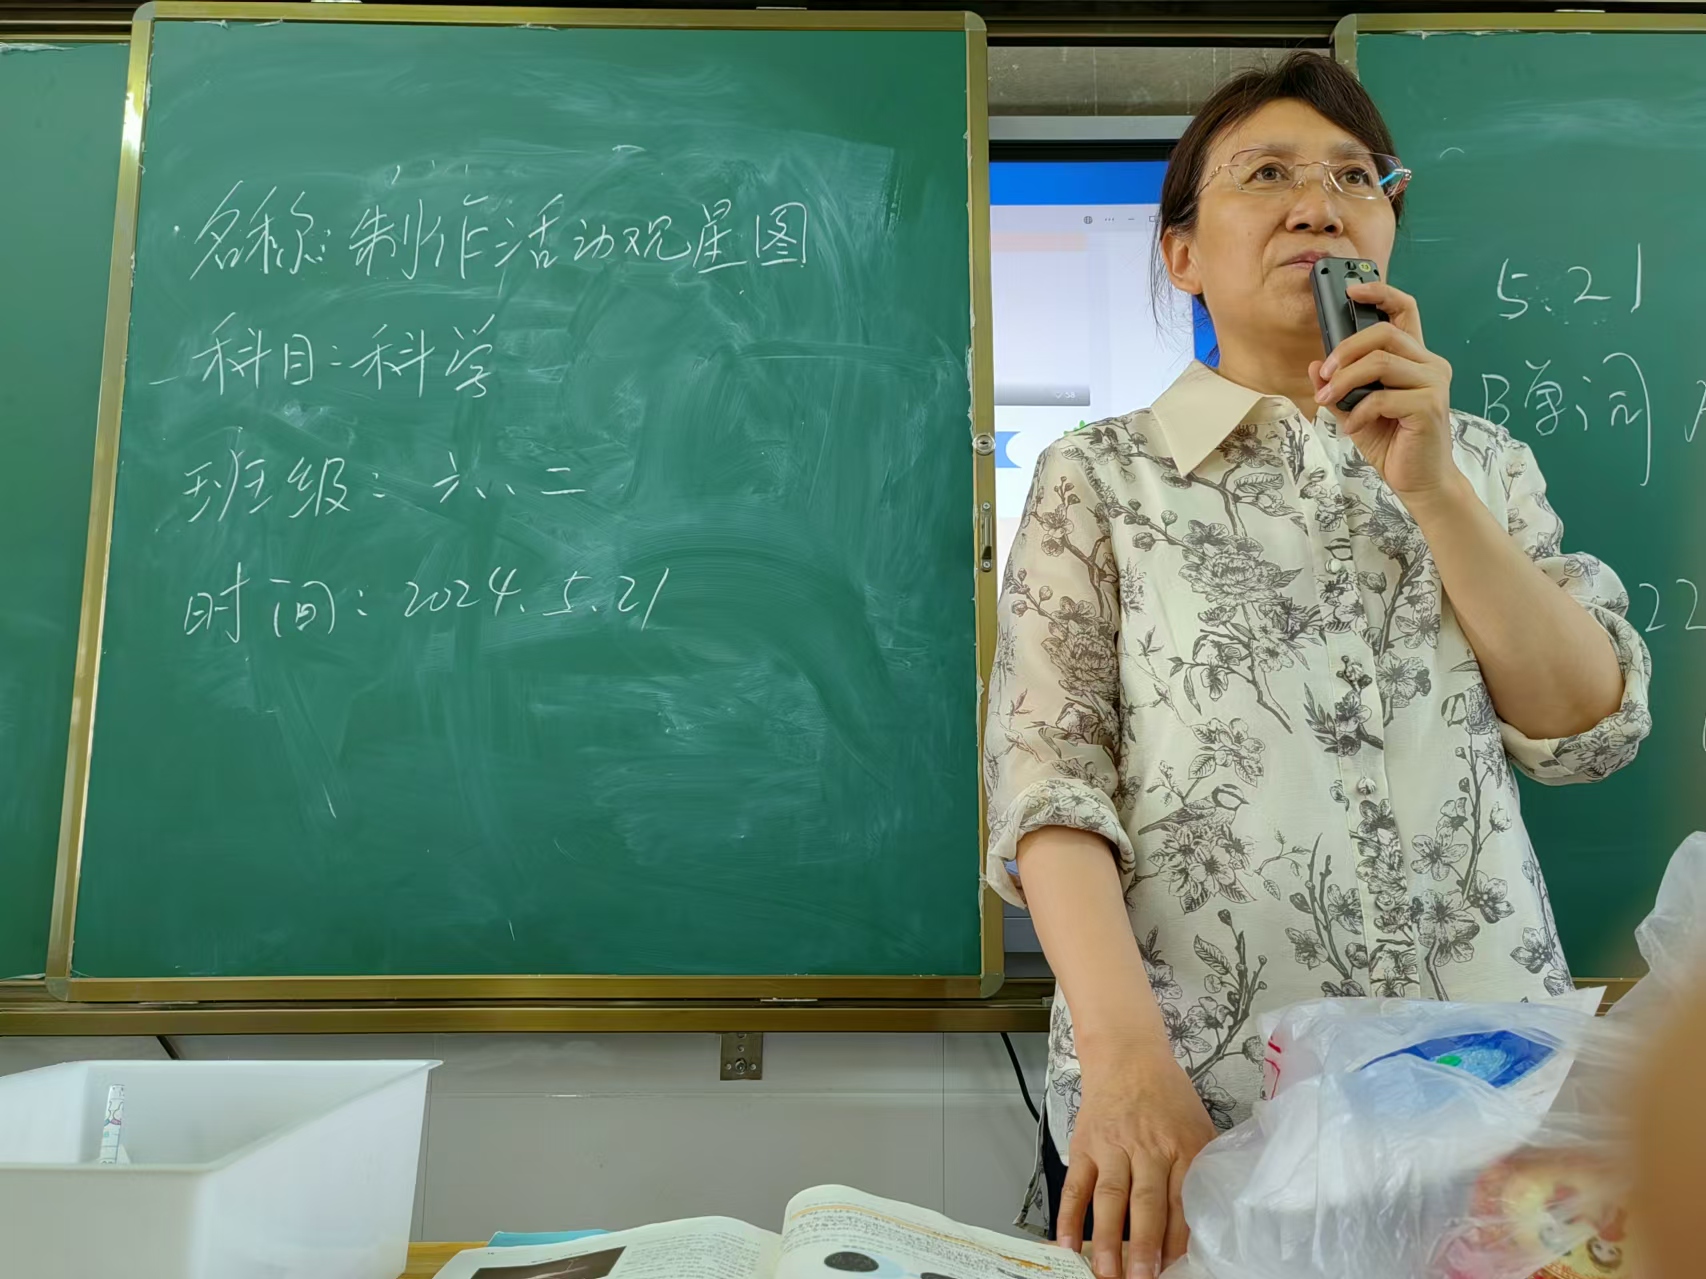 名称:制作活动观星图
科目:科学
班级:六、二
时间:2024.5.21
5.21
B单词
22